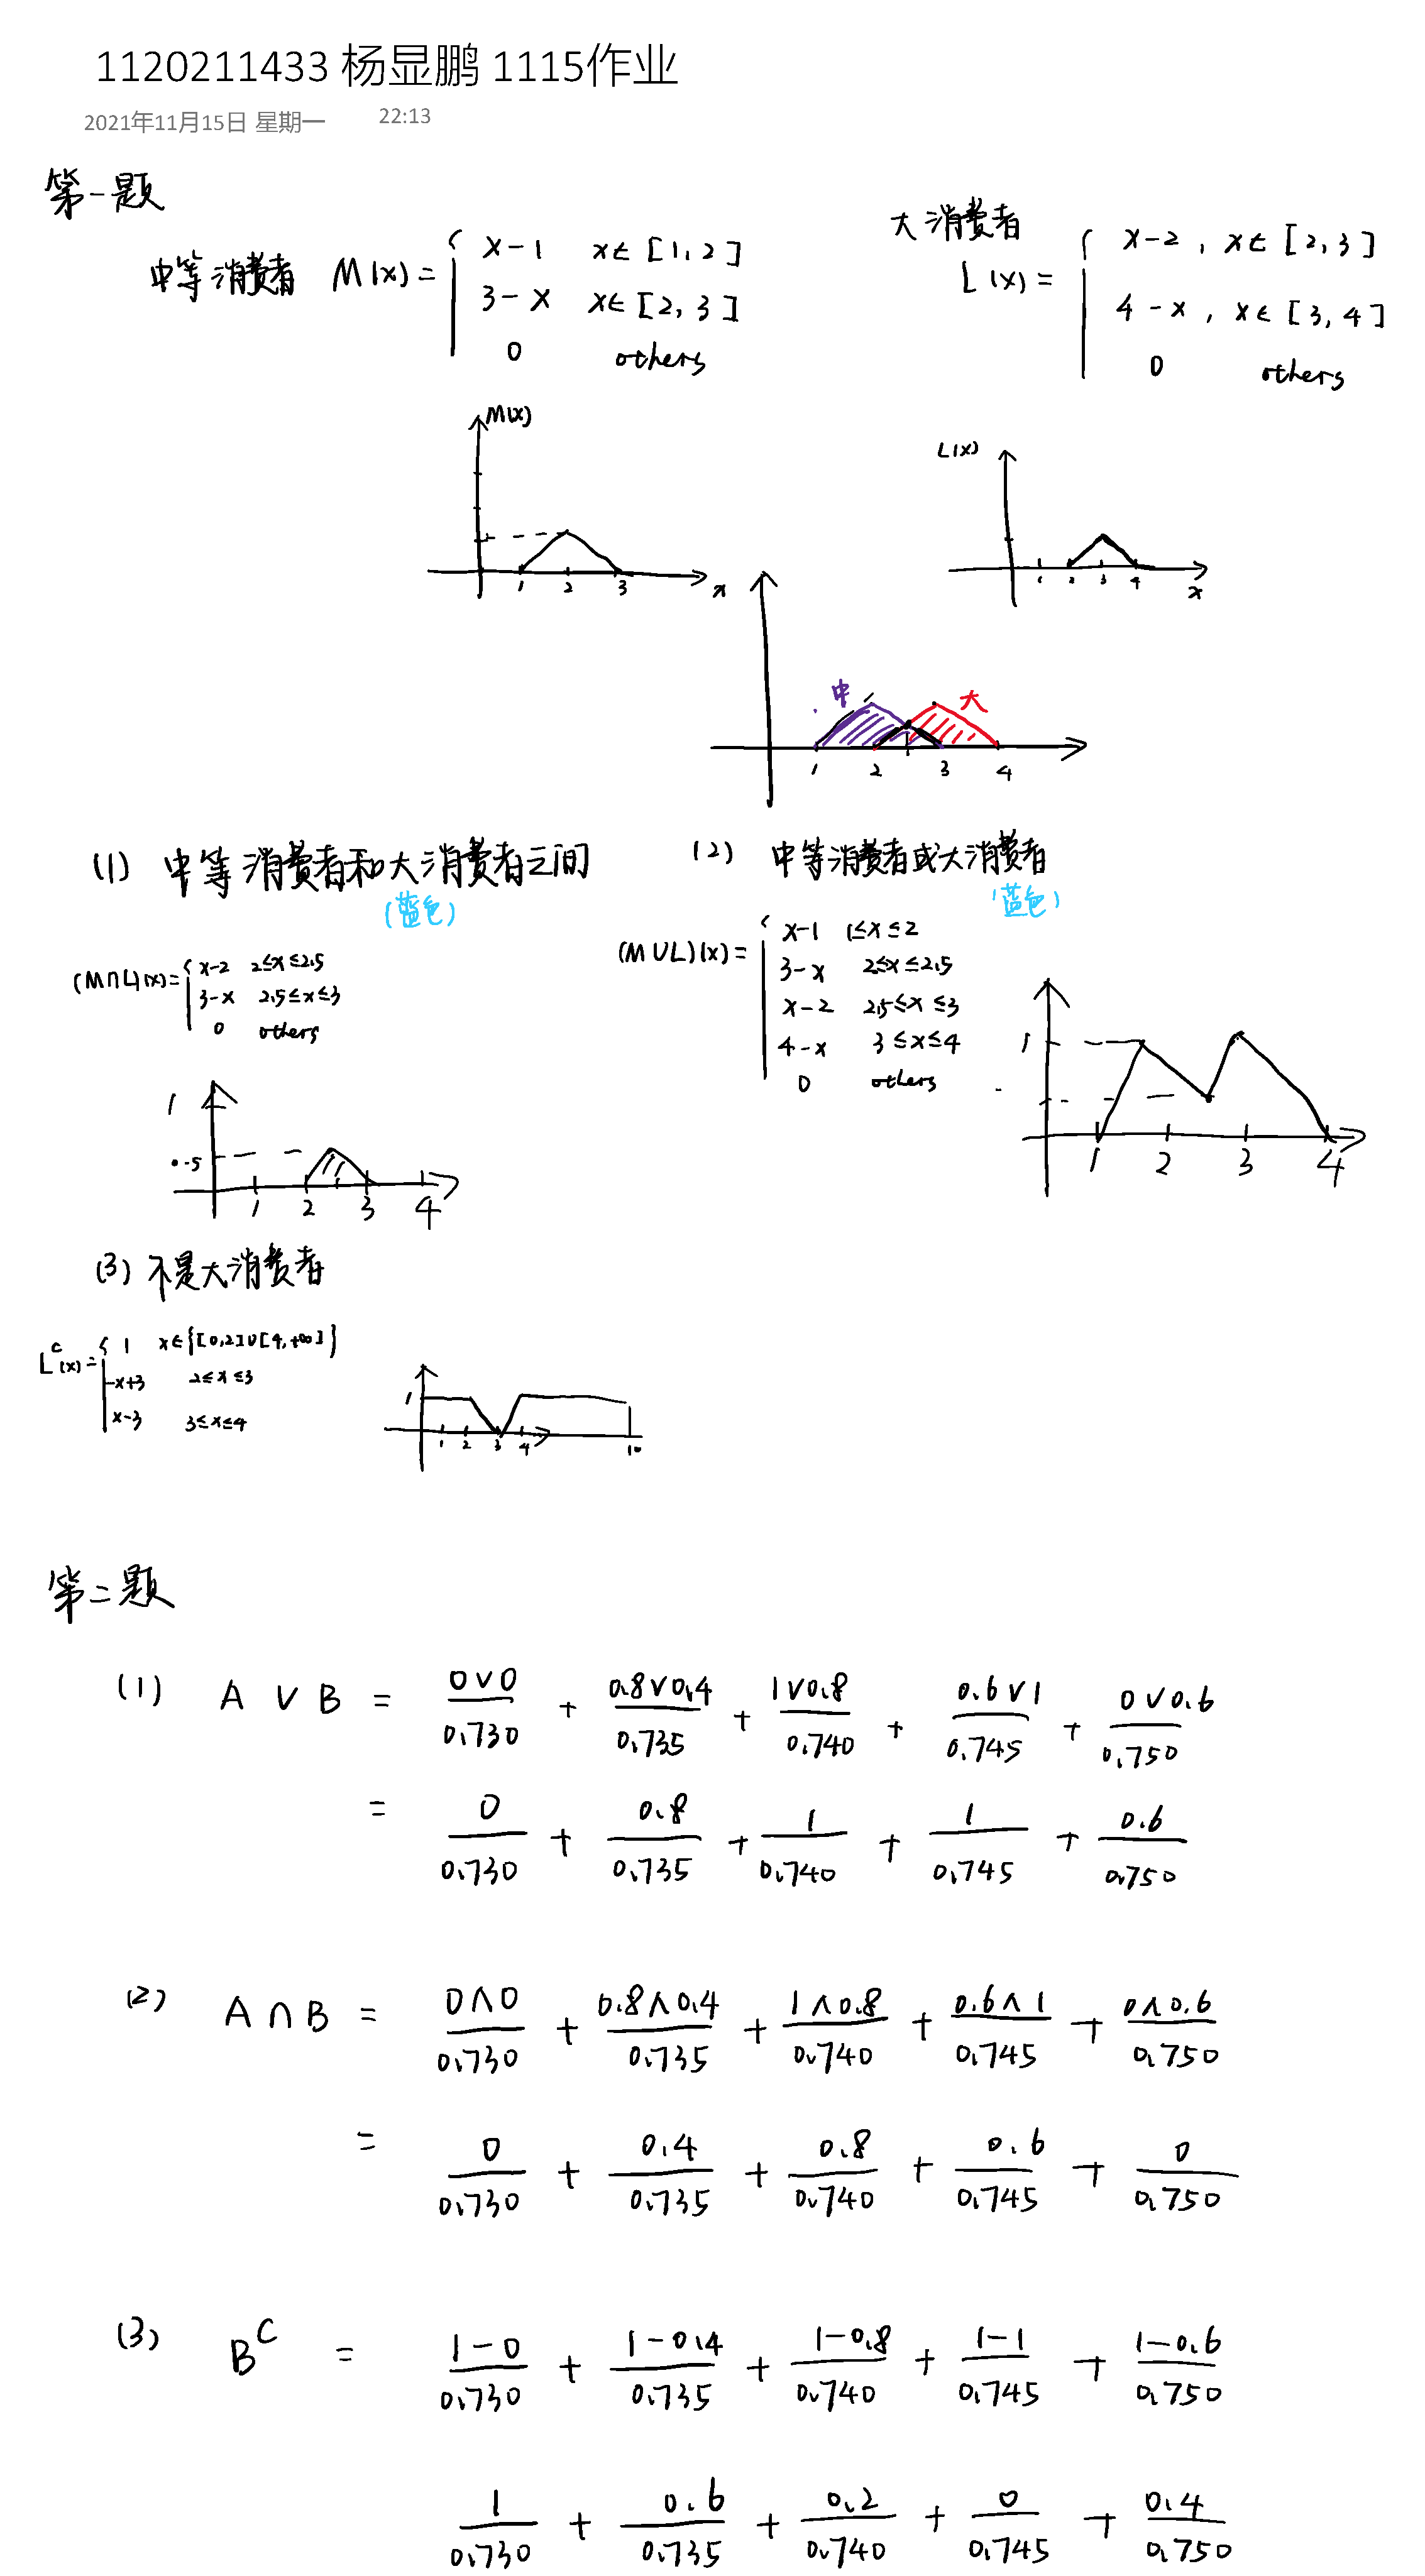 1120211433 杨显鹏 1115作业
2021年11月15日 星期一 22:13
第一题
中等消费者 M(x) = { x-1 x∈[1,2]
3-x x∈[2,3]
0 others
大消费者
L(x) = { x-2, x∈[2,3]
4-x, x∈[3,4]
0 others
M(x)
1 2 3 x
L(x)
1 2 3 4 x
中 大
1 2 3 4
(1) 中等消费者和大消费者之间
(蓝色)
(M∩L)(x) = { x-2 2≤x≤2.5
3-x 2.5≤x≤3
0 others
1
0.5
1 2 3 4
(2) 中等消费者或大消费者
(蓝色)
(M∪L)(x) = { x-1 1≤x≤2
3-x 2≤x≤2.5
x-2 2.5≤x≤3
4-x 3≤x≤4
0 others
1
1 2 3 4
(3) 不是大消费者
L^c(x) = { 1 x∈{[0,2]∪[4,+∞]}
-x+3 2≤x≤3
x-3 3≤x≤4
1
1 2 3 4 10
第二题
(1) A ∨ B = 0∨0/0.730 + 0.8∨0.4/0.735 + 1∨0.8/0.740 + 0.6∨1/0.745 + 0∨0.6/0.750
= 0/0.730 + 0.8/0.735 + 1/0.740 + 1/0.745 + 0.6/0.750
(2) A ∩ B = 0∧0/0.730 + 0.8∧0.4/0.735 + 1∧0.8/0.740 + 0.6∧1/0.745 + 0∧0.6/0.750
= 0/0.730 + 0.4/0.735 + 0.8/0.740 + 0.6/0.745 + 0/0.750
(3) B^C = 1-0/0.730 + 1-0.4/0.735 + 1-0.8/0.740 + 1-1/0.745 + 1-0.6/0.750
1/0.730 + 0.6/0.735 + 0.2/0.740 + 0/0.745 + 0.4/0.750